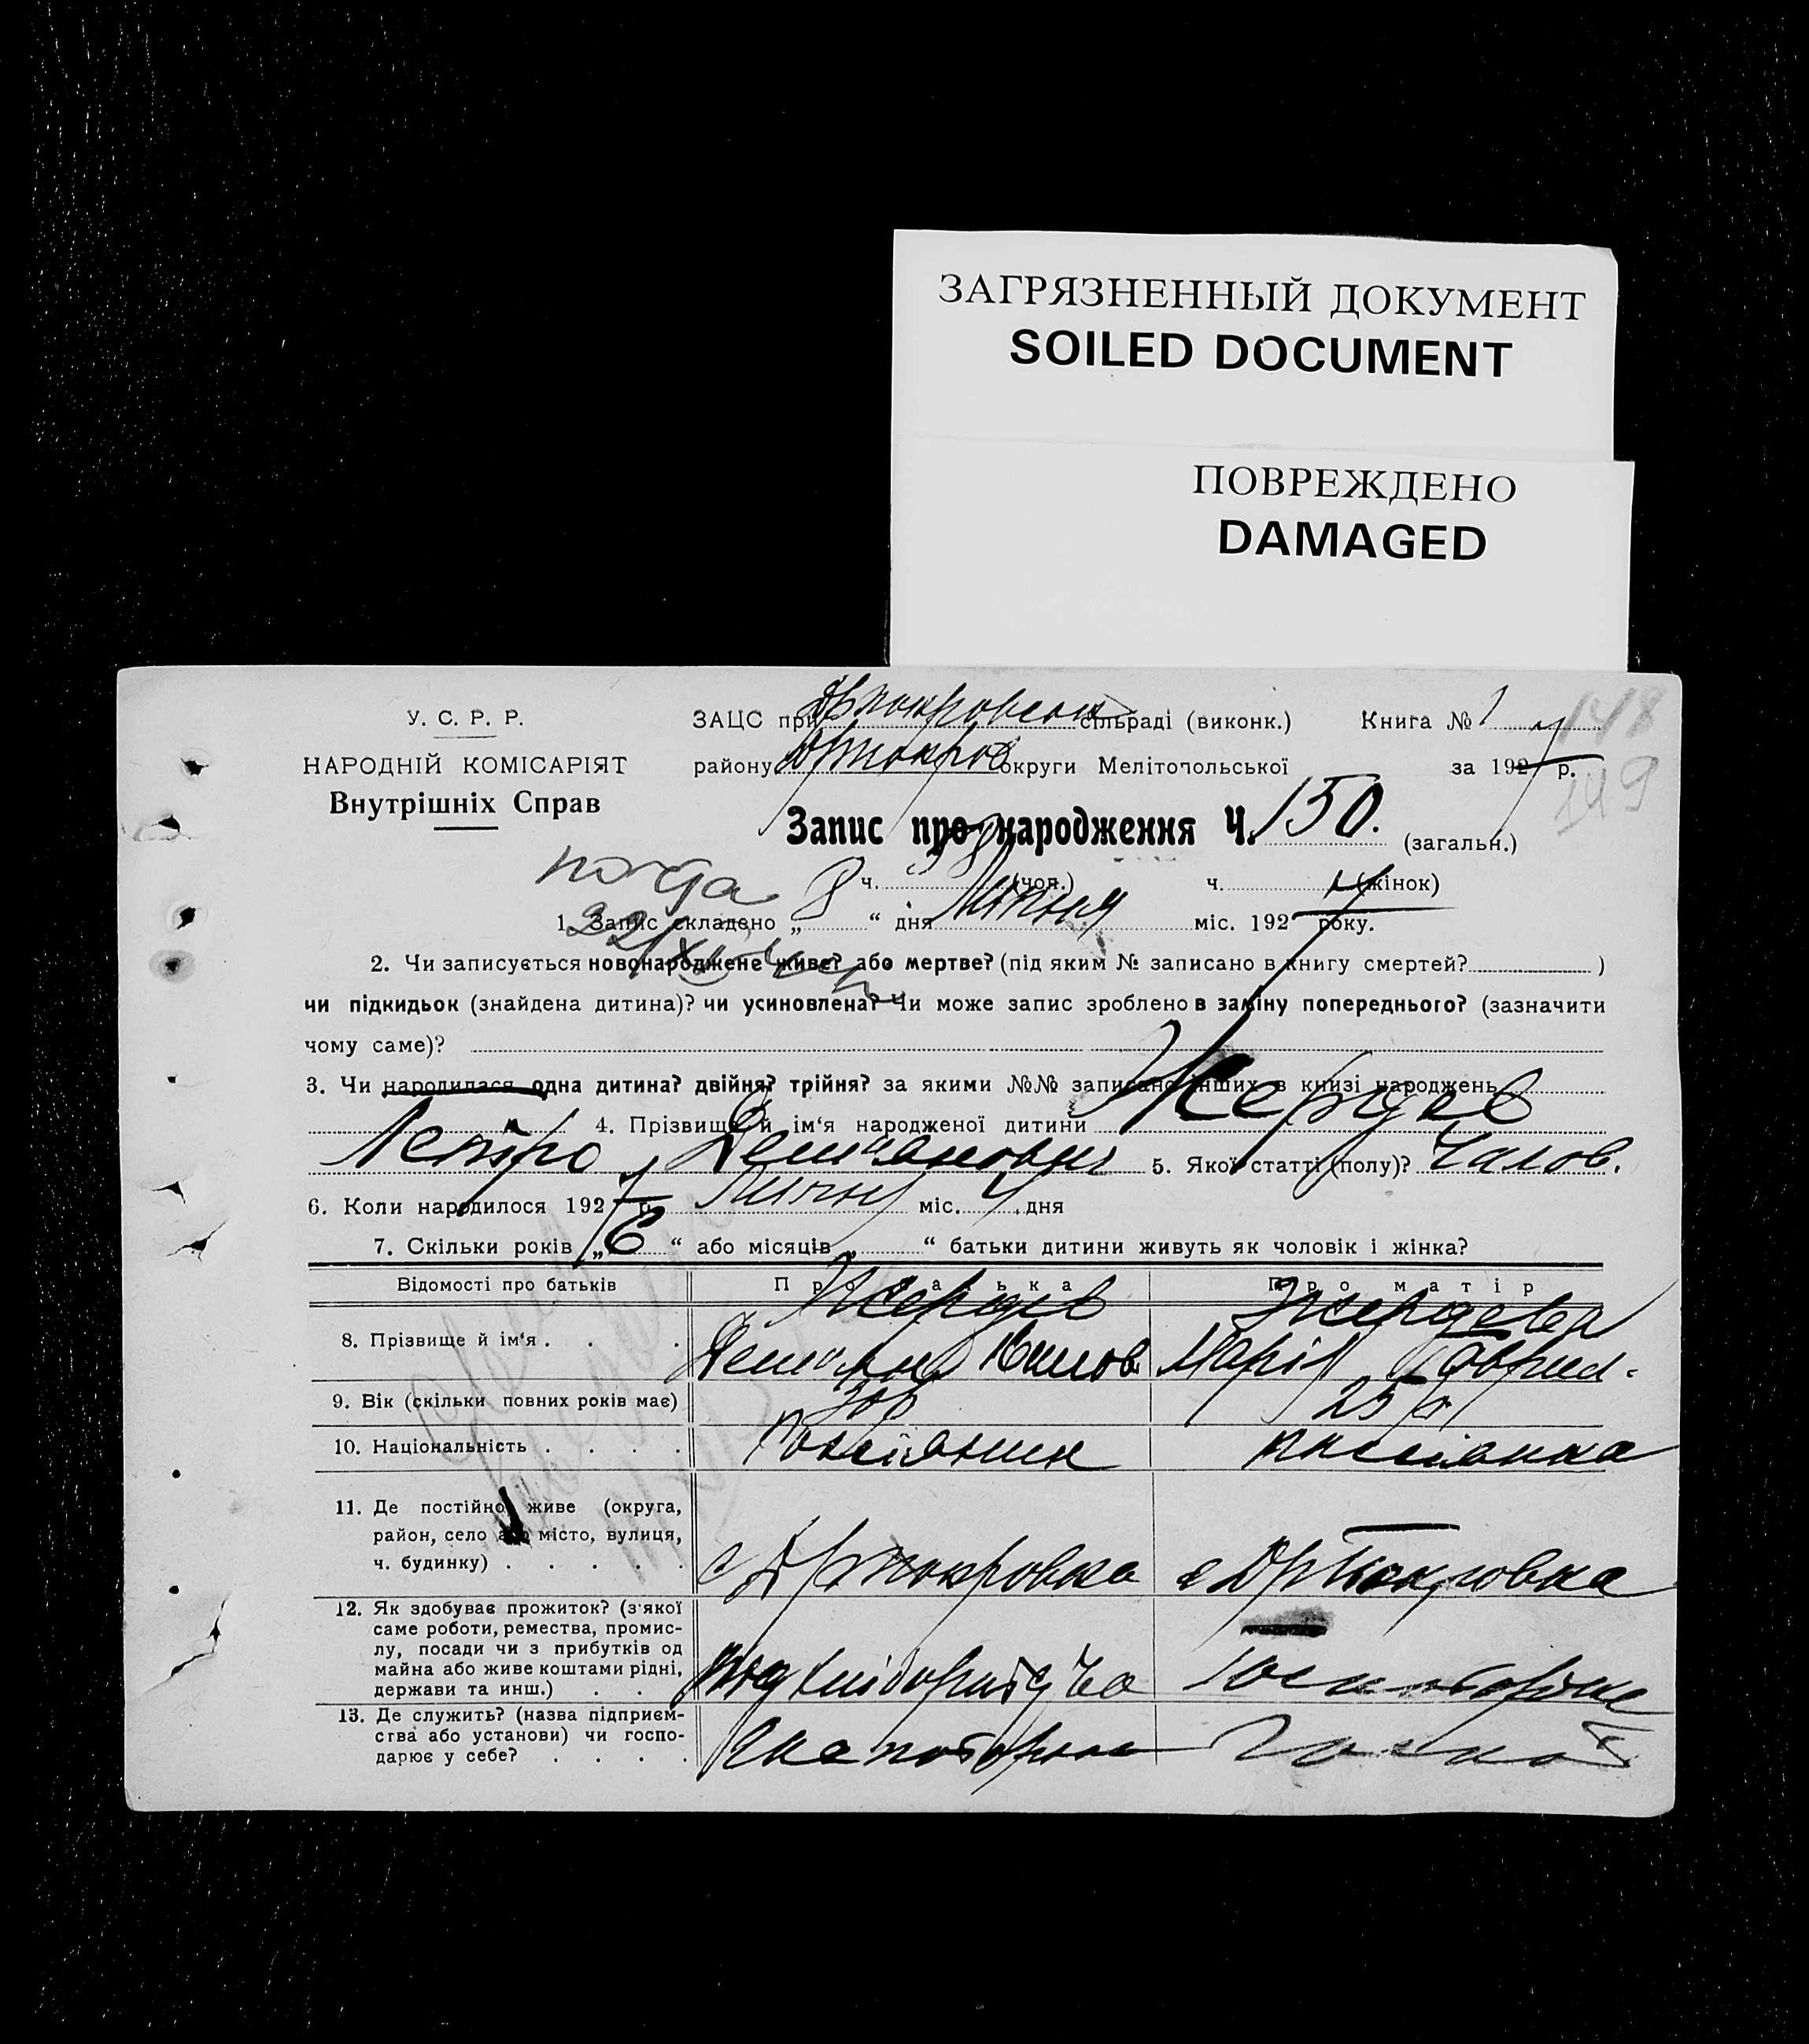 ЗАГРЯЗНЕННЫЙ ДОКУМЕНТ
SOILED DOCUMENT
ПОВРЕЖДЕНО
DAMAGED
У. С. Р. Р.
НАРОДНІЙ КОМІСАРІЯТ
Внутрішніх Справ
ЗАЦС при сільраді (виконк.) Книга № 1
148
району округи Мелітопольської за 1927 р.
149
Запис про народження Ч. 150. (загальн.)
ч. (чол.) ч. (жінок)
1. Запис складено „ 8 “ дня Липня міс. 1927 року.
2. Чи записується новонароджене живе? або мертве? (під яким № записано в книгу смертей? )
чи підкидьок (знайдена дитина)? чи усиновлена? Чи може запис зроблено в заміну попереднього? (зазначити
чому саме)?
3. Чи народилася одна дитина? двійня? трійня? за якими №№ записано інших в книзі народжень
4. Прізвище й ім‘я народженої дитини Жердєв
Петро Демианович 5. Якої статті (полу)? Чалов.
6. Коли народилося 1927 р. Липня міс. 4 дня
7. Скільки років „ 6 “ або місяців „ “ батьки дитини живуть як чоловік і жінка?
Відомості про батьків Про батька Про матір
8. Прізвище й ім‘я . . . Жердєв Жердева
Марія Гаврил.
9. Вік (скільки повних років має) 30 р 25 р
10. Національність . . . . Росіянин росіянка
11. Де постійно живе (округа,
район, село або місто, вулиця,
ч. будинку) . . . . . с Др Покровка с Др Покровка
12. Як здобуває прожиток? (з‘якої
саме роботи, ремества, промис-
лу, посади чи з прибутків од
майна або живе коштами рідні,
держави та инш.) . . .
13. Де служить? (назва підприєм-
ства або установи) чи госпо-
дарює у себе? . . . .